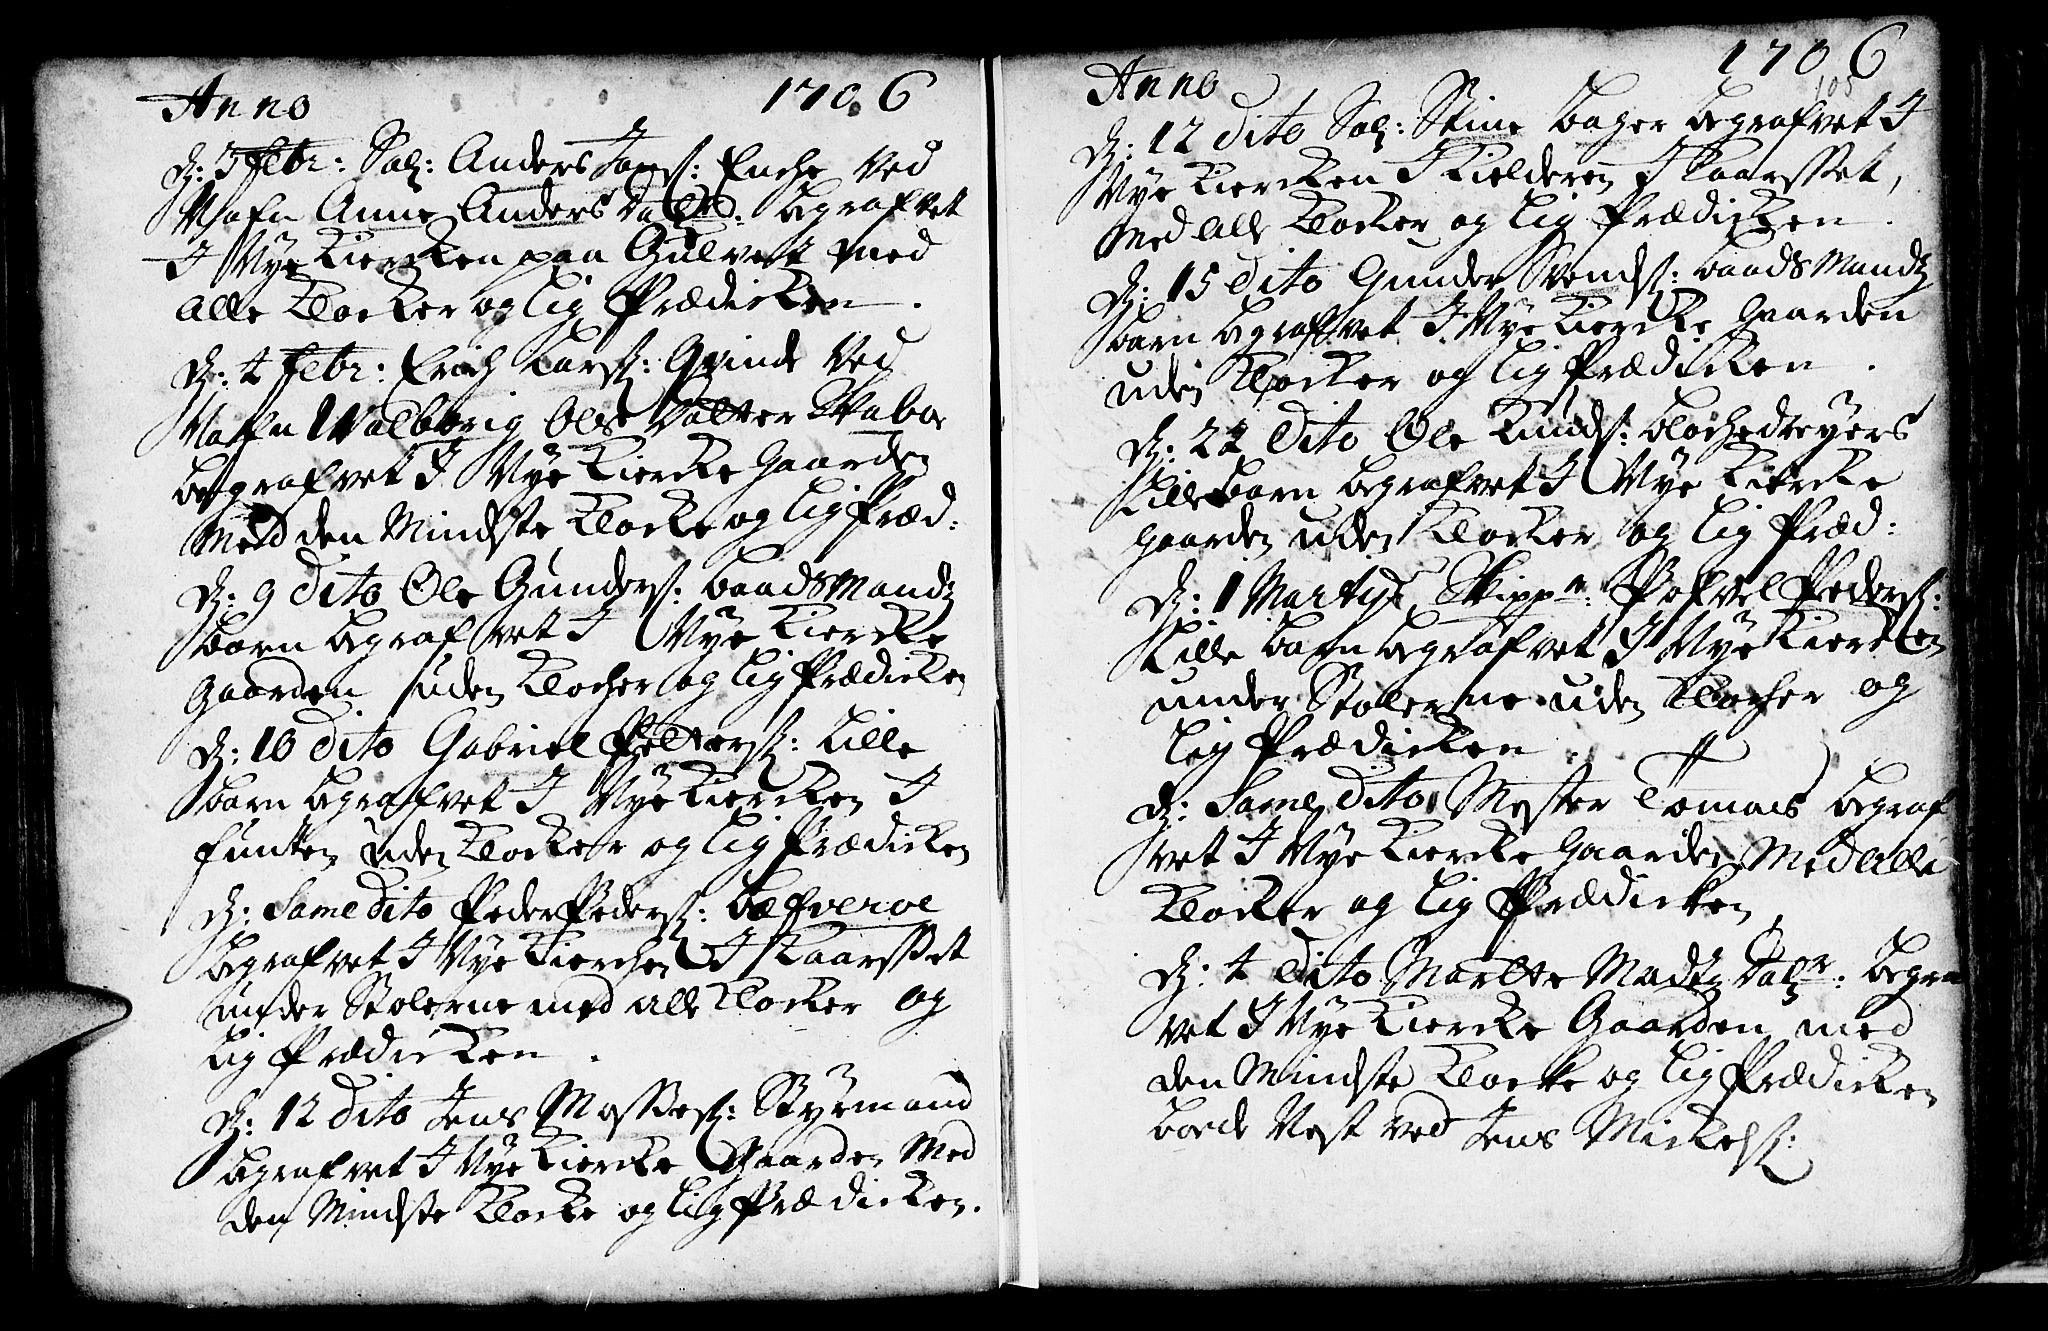 Anno 1706
D: 3 febr: Sal: Anders Jens: Enche ved
Nafn Anne Anders Datter: begrafvet
I Nye Kiercken paa Gulvet med
alle Klocker og Lig Prædicken.
D: 4 febr: Erich Lars: Qvinde ved
Nafn Walborig Ols Datter Skabo
begrafvet I Nye Kiercke Gaarden
Med den Mindste Klocke og Lig Præd:
D: 9 Dito Ole Gunders: baadsMandz
barn begrafvet I Nye Kiercke
Gaarden uden Klocher og Lig Prædicken
D: 10 Dito Gabriel Petters: Lille
barn begrafvet I Nye Kiercken I
funten uden Klocker og Lig Prædicken
D: Same Dito Peder Peders: Bæfveroe
begrafvet I Nye Kierchen I Kaarsset
under Stolerne med alle Klocker og
Lig Prædicken.
D: 12 Dito Jens Mosses: Styrmand
begrafvet I Nye Kiercke Gaarden Med
den Mindste Klocke og Lig Prædicken.
Anno 1706
105
D: 12 Dito Sal: Stine bager begrafvet I
Nye Kiercken I Kielderen I Kaarsset,
Med alle Klocker og Lig Prædicken.
D: 15 Dito Gunder Svends: baadsMandz
barn begrafvet I Nye Kiercke Gaarden
uden Klocker og Lig Prædicken.
D: 22 Dito Ole Knuds: blochedreyers
Lille barn begrafvet I Nye Kiercke
Gaarden uden Klocker og Lig Præd:
D: 1 Marty Skippr: Pofvel Peders:
Lille barn begrafvet I Nye Kiercken
under Stolerne uden Klocher og
Lig Prædicken.
D: Same Dito Mester Tomas begraf
vet I Nye Kiercke Gaarden Med alle
Klocker og Lig Prædicken,
D: 4 Dito Marete Madtz Datr: begra
vet I Nye Kiercke Gaarden med
den Mindste Klocke og Lig Prædicken
boede Nest ved Jens Mickels: